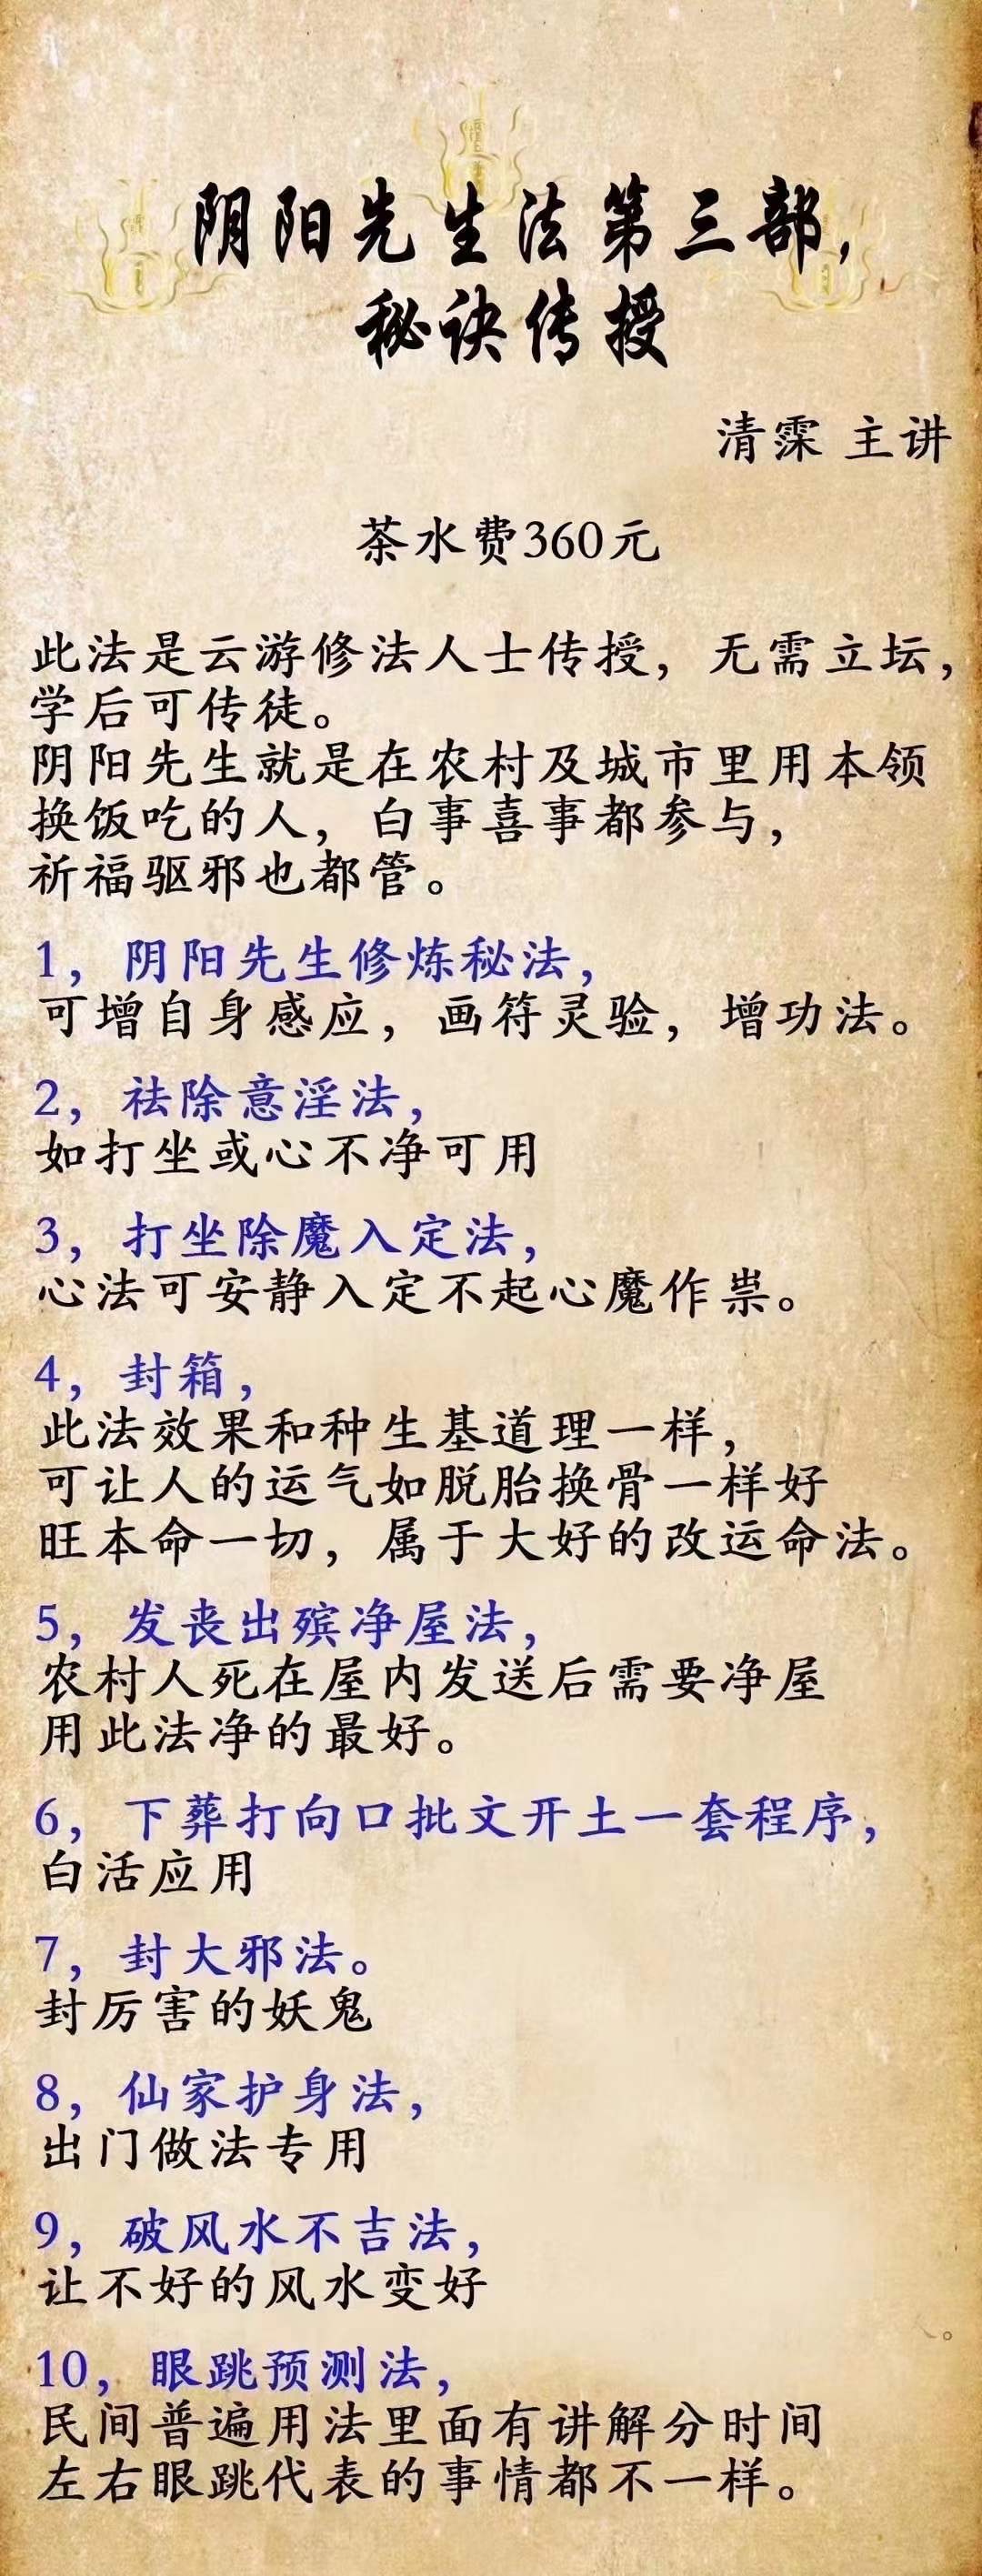 阴阳先生法第三部，
秘诀传授
清霂 主讲
茶水费360元
此法是云游修法人士传授，无需立坛，
学后可传徒。
阴阳先生就是在农村及城市里用本领
换饭吃的人，白事喜事都参与，
祈福驱邪也都管。
1，阴阳先生修炼秘法，
可增自身感应，画符灵验，增功法。
2，祛除意淫法，
如打坐或心不净可用
3，打坐除魔入定法，
心法可安静入定不起心魔作祟。
4，封箱，
此法效果和种生基道理一样，
可让人的运气如脱胎换骨一样好
旺本命一切，属于大好的改运命法。
5，发丧出殡净屋法，
农村人死在屋内发送后需要净屋
用此法净的最好。
6，下葬打向口批文开土一套程序，
白活应用
7，封大邪法。
封厉害的妖鬼
8，仙家护身法，
出门做法专用
9，破风水不吉法，
让不好的风水变好
10，眼跳预测法，
民间普遍用法里面有讲解分时间
左右眼跳代表的事情都不一样。